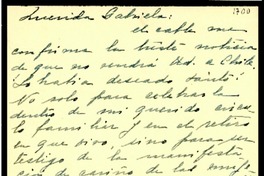 1700
Querida Gabriela:
el cable me
confirma la triste noticia
de que no vendrá Ud. a Chile.
¡Lo había deseado tanto!
No solo para celebrarla
dentro de mi querido círcu
lo familiar y en el retiro
en que vivo, sino para ser
testigo de las manifesta
ción de cariño de las